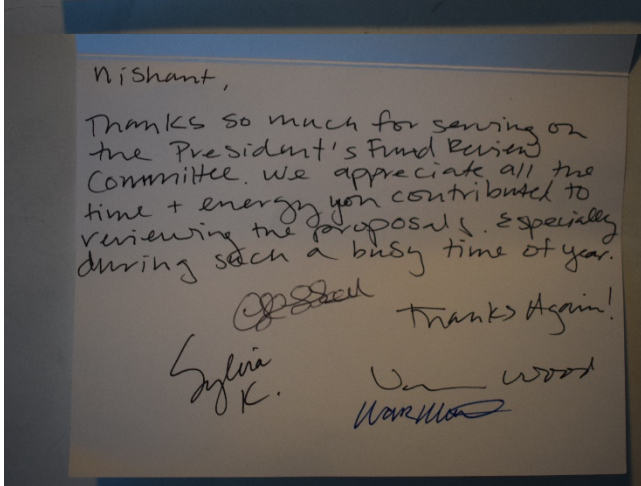 Nishant,
Thanks so much for serving on
the President's Fund Review
Committee. We appreciate all the
time + energy you contributed to
reviewing the proposals. Especially
during such a busy time of year.
Thanks Again!
Sylvia
K.
Wood